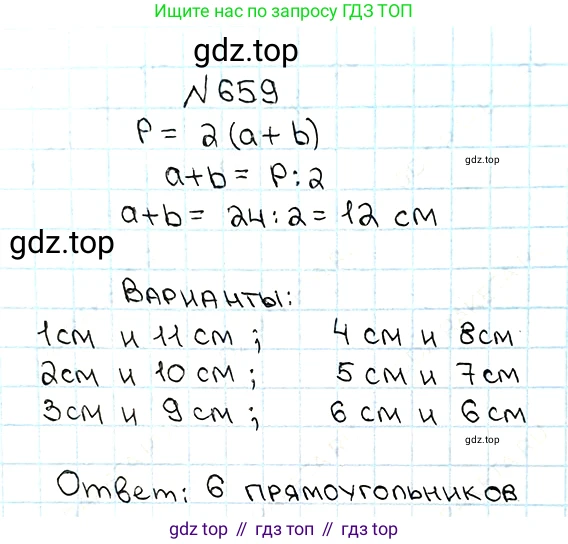 Ищите нас по запросу ГДЗ ТОП
gdz.top
№659
P = 2(a+b)
a+b = P:2
gdz.top
a+b = 24:2 = 12 см
gdz.top
Варианты:
1см и 11 см; 4 см и 8см
2см и 10 см; 5 см и 7 см
3см и 9 см; 6 см и 6 см
gdz.top
Ответ: 6 прямоугольников
gdz.top // гдз топ // гдз.топ